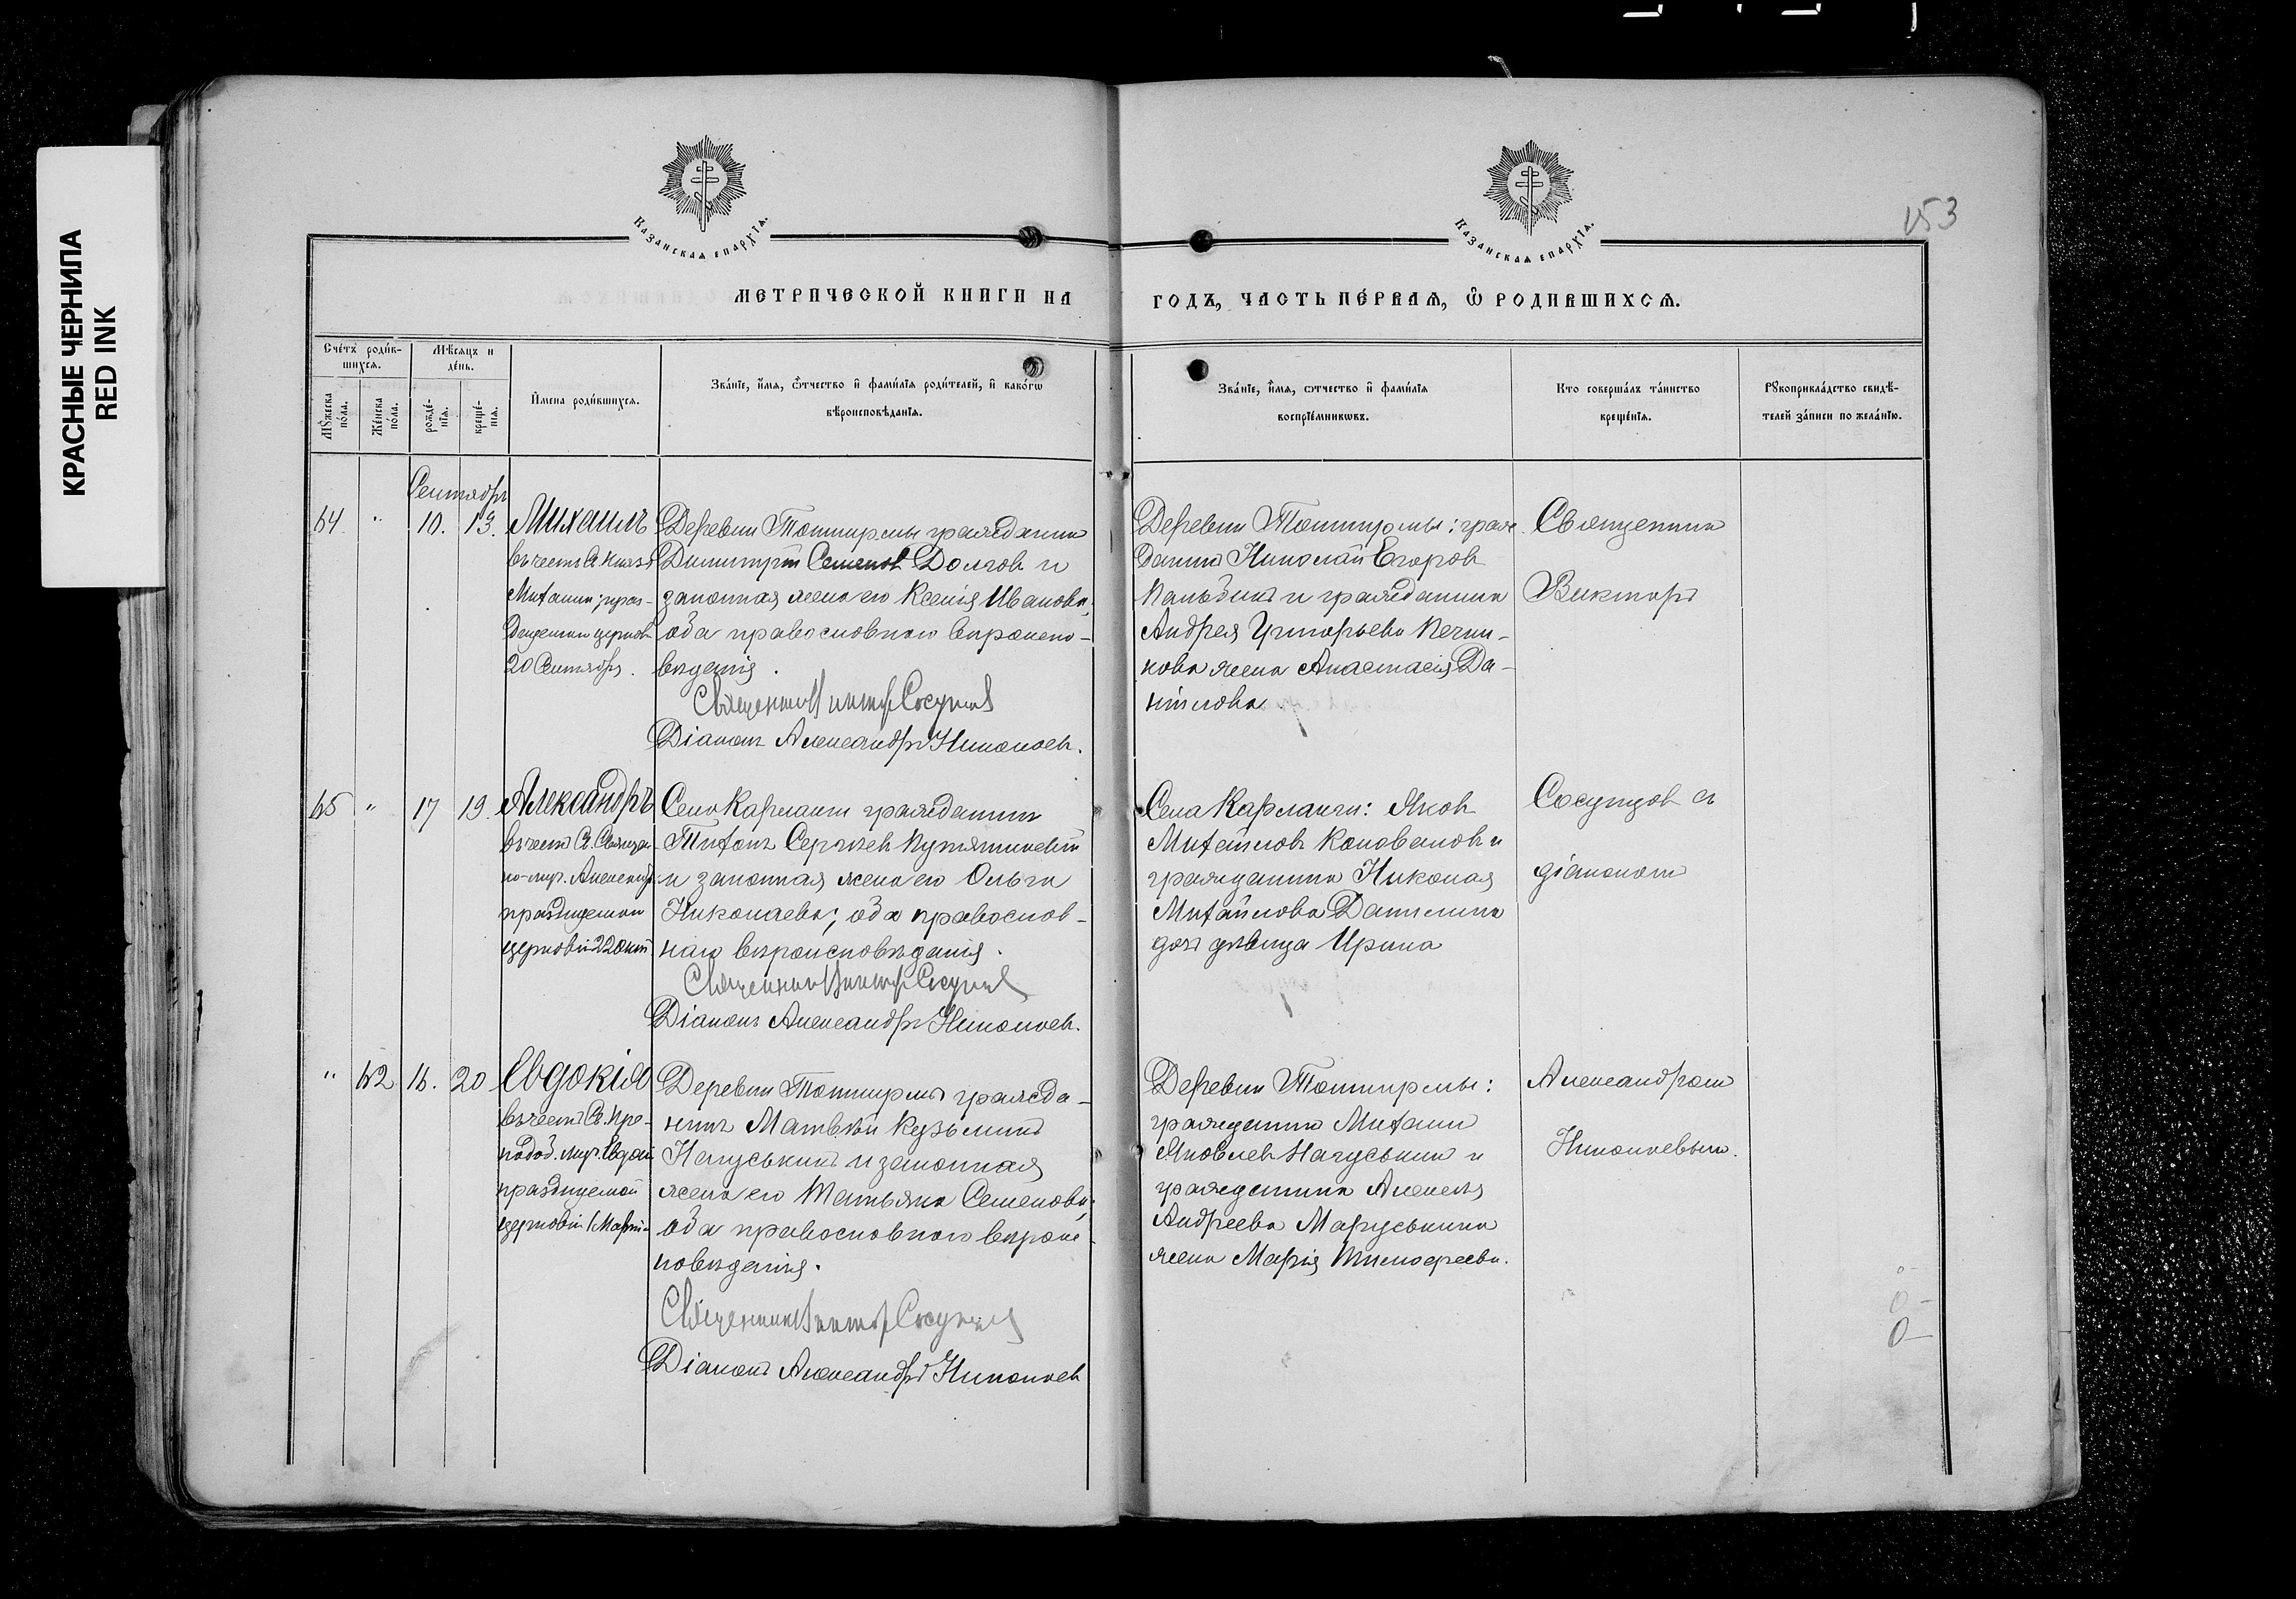 КРАСНЫЕ ЧЕРНИЛА
RED INK
Казанская епархїѧ.
Казанская епархїѧ.
153
МЕТРИЧЕСКОЙ КНИГИ НА
ГОДЪ, ЧАСТЬ ПЕРВАЯ, Ѽ РОДИВШИХСЯ.
Счетъ родив-
шихся.
Мѣсяцъ и
день.
Мꙋжеска
пола.
Женска
пола.
рожде-
нїя.
креще-
нїя.
Имена родившихся.
Званїе, имя, ѻтчество и фамилїя родителей, и какогѡ
вѣроисповѣданїя.
Званїе, имя, ѻтчество и фамилїя
воспрїемникѡвъ.
Кто совершалъ таинство
крещенїя.
Рꙋкоприкладство свидѣ-
телей записи по желанїю.
Сентябрь
64 " 10. 13. Михаилъ
въ честь Св. Князя
Михаила; праз-
20 Сентября.
Деревни гражданинъ
Димитрій Семенов Долгов и
законная жена его Ксенія Иванова,
оба православного вѣроиспо-
вѣданія.
Священник Виктор
Діаконъ Александръ Никоноев.
Деревни : граж
данин Николай Егоров
и гражданина
Андрея Григорьева
нова жена Анастасія Да-
нілова.
Священник
Викторъ
65 " 17 19. Александръ
въ честь Св. Священ
но-муч. Александр
празднуемой
церковію 22 Окт.
Села Карланги гражданин
Тихонъ Сергѣев
и законная жена его Ольга
Николаева; оба православ-
наго вѣроисповѣданія.
Священник Виктор
Діаконъ Александръ Никоноев.
Села Карланги: Яков
Михайловъ Коновалов и
гражданина Николая
Михайлова Данилина
дочь дѣвица Ирина
с
діаконом
" 62 16. 20 Евдокія
въ честь Св. Пре-
подоб. муч. Евдокіи
празднуемой
церковію 1 Марта
Деревни гражда-
нинъ Матвѣй Кузьминъ
и законная
жена его Татьяна Семенова;
оба православного вѣроис
повѣданія.
Священник Виктор
Діаконъ Александръ Никоноев
Деревни :
гражданин Михаил
Яковлев и
гражданина Алексѣя
Андреева Маруськина
жена Марія Тимофеева.
Александром
Никоноевым.